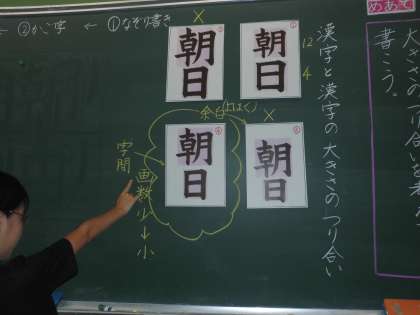 めあて
大きさの
書こう。
漢字と漢字の大きさのつり合い
12
4
①
朝日
×
朝日
余白(よはく)
×
朝日
④
朝日
字間
画数少→小
①なぞり書き
←
②かご字
←